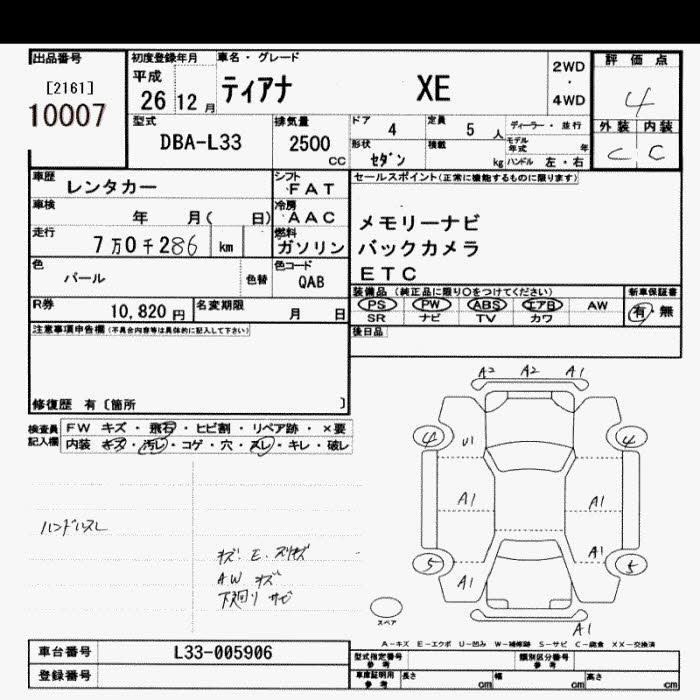 出品番号
[2161]
10007
初度登録年月
平成
26 12 月
車名・グレード
ティアナ XE
2WD
・
4WD
評価点
4
外装 内装
C C
型式
DBA-L33
排気量
2500
CC
ドア 4
定員 5 人
ディーラー・並行
形状 セダン
積載 kg
モデル年式 年
ハンドル 左・右
車歴 レンタカー
シフト FAT
セールスポイント(正常に機能するものに限ります)
車検 年 月( 日)
冷房 AAC
メモリーナビ
走行 7万0千286 km
燃料 ガソリン
バックカメラ
ETC
色 パール
色替
色コード QAB
装備品(純正品に限り○をつけてください)
新車保証書
PS PW ABS エアB AW
有・無
SR ナビ TV カワ
R券 10,820 円
名変期限 月 日
後日品
注意事項申告欄(不具合内容等は具体的に記入して下さい)
修復歴 有〔箇所 〕
検査員記入欄
FW キズ・飛石・ヒビ割・リペア跡・×要
内装 キズ・汚レ・コゲ・穴・スレ・キレ・破レ
A2 A2 A1
4 U1 4
A1 A1
A1
5 A1 5
A1
ハンドルスレ
キズ E
AW キズ
下廻り サビ
スペア
A-キズ E-エクボ U-凹み W-補修跡 S-サビ C-腐食 XX-交換済
車台番号 L33-005906
登録番号
型式指定番号 参考
類別区分番号 参考
車庫証明用 参考
長さ cm 幅 cm 高さ cm